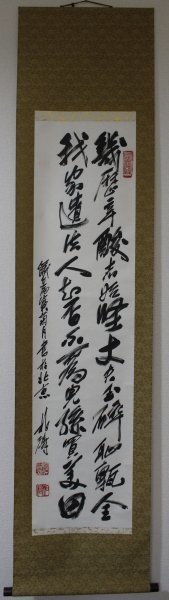 幾歷辛酸志始堅丈夫玉碎恥甎全
我家遺法人知否不為兒孫買美田
月書於北京